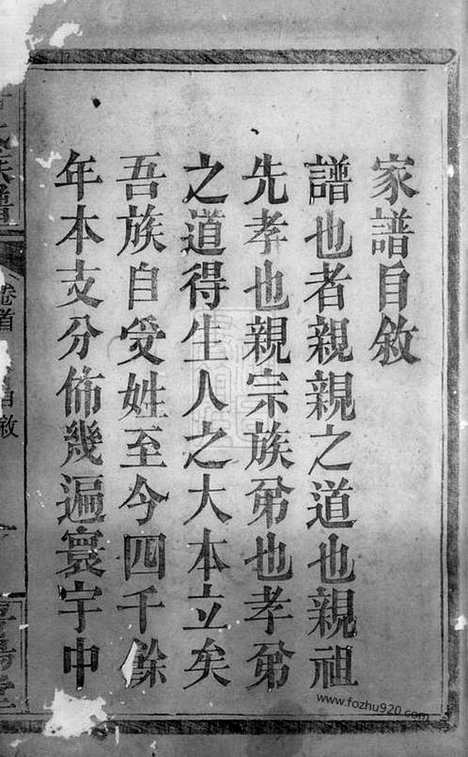 家譜自敘
譜也者親親之道也親祖
先孝也親宗族弟也孝弟
之道得生人之大本立矣
吾族自受姓至今四千餘
年本支分佈幾遍寰宇中
族譜
卷首
自敘
堂
www.fozhu920.com